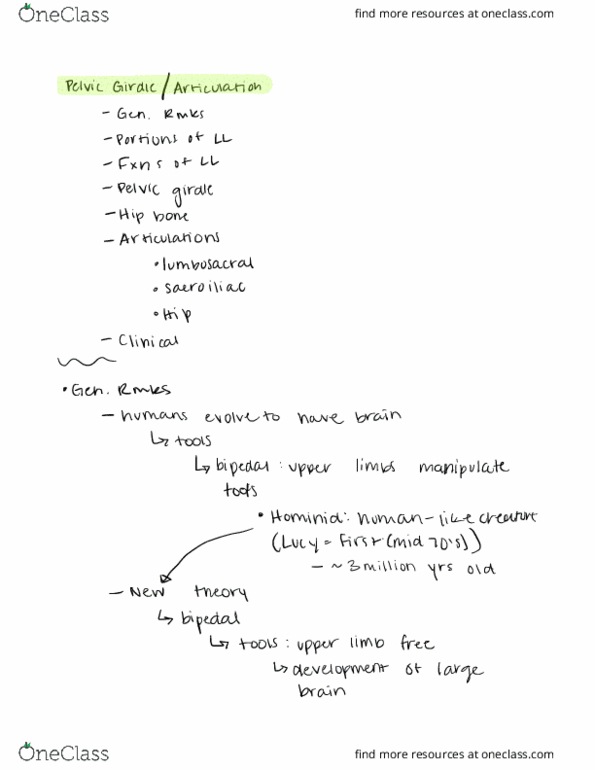 OneClass
find more resources at oneclass.com
Pelvic Girdle / Articulation
- Gen. Rmks
- Portions of LL
- Fxns of LL
- Pelvic girdle
- Hip bone
- Articulations
• lumbosacral
• sacroiliac
• Hip
- Clinical
• Gen. Rmks
- humans evolve to have brain
↳ tools
↳ bipedal : upper limbs manipulate
tools
• Hominid : human-like creature
(Lucy = first (mid 70's))
- ~ 3 million yrs old
- New theory
↳ bipedal
↳ tools : upper limb free
↳ development of large
brain
OneClass
find more resources at oneclass.com